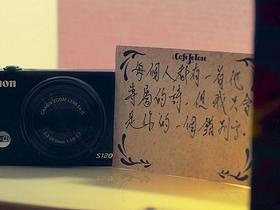 non
CANON ZOOM LENS 5x IS
5.2-26.0mm 1:1.8-5.7
S120
每個人都有一首他
專屬的詩，但我只會
是妳的一個錯別字。